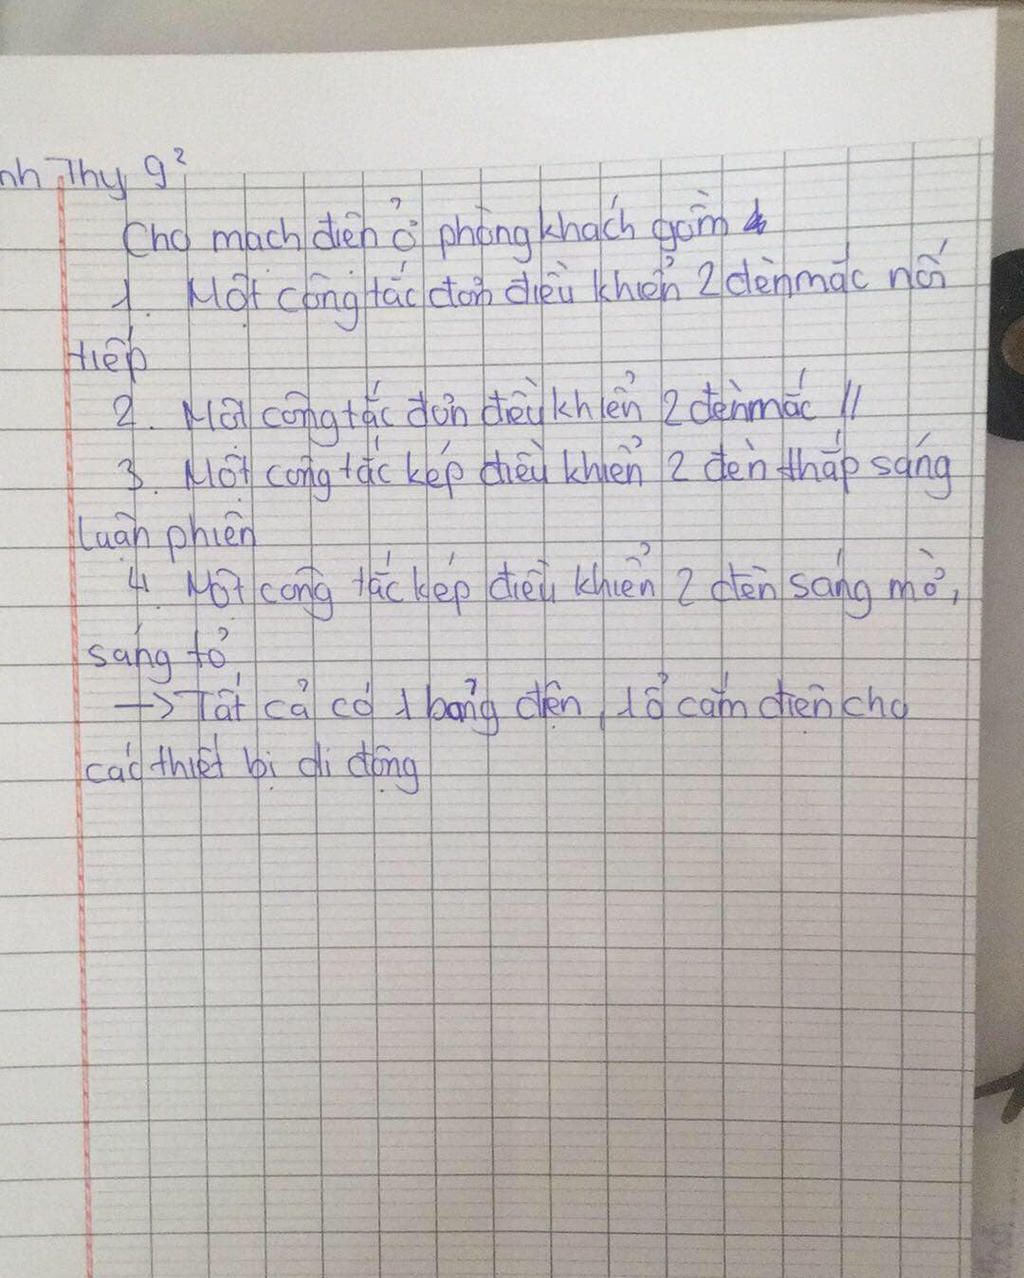 nh Thy 9²
Cho mạch điện ở phòng khách gồm
1. Một công tắc đơn điều khiển 2 đèn mắc nối
tiếp
2. Một công tắc đơn điều khiển 2 đèn mắc //
3. Một công tắc kép điều khiển 2 đèn thắp sáng
luân phiên
4. Một công tắc kép điều khiển 2 đèn sáng mờ,
sáng tỏ
→ Tất cả có 1 bảng điện, 1 ổ cắm điện cho
các thiết bị di động